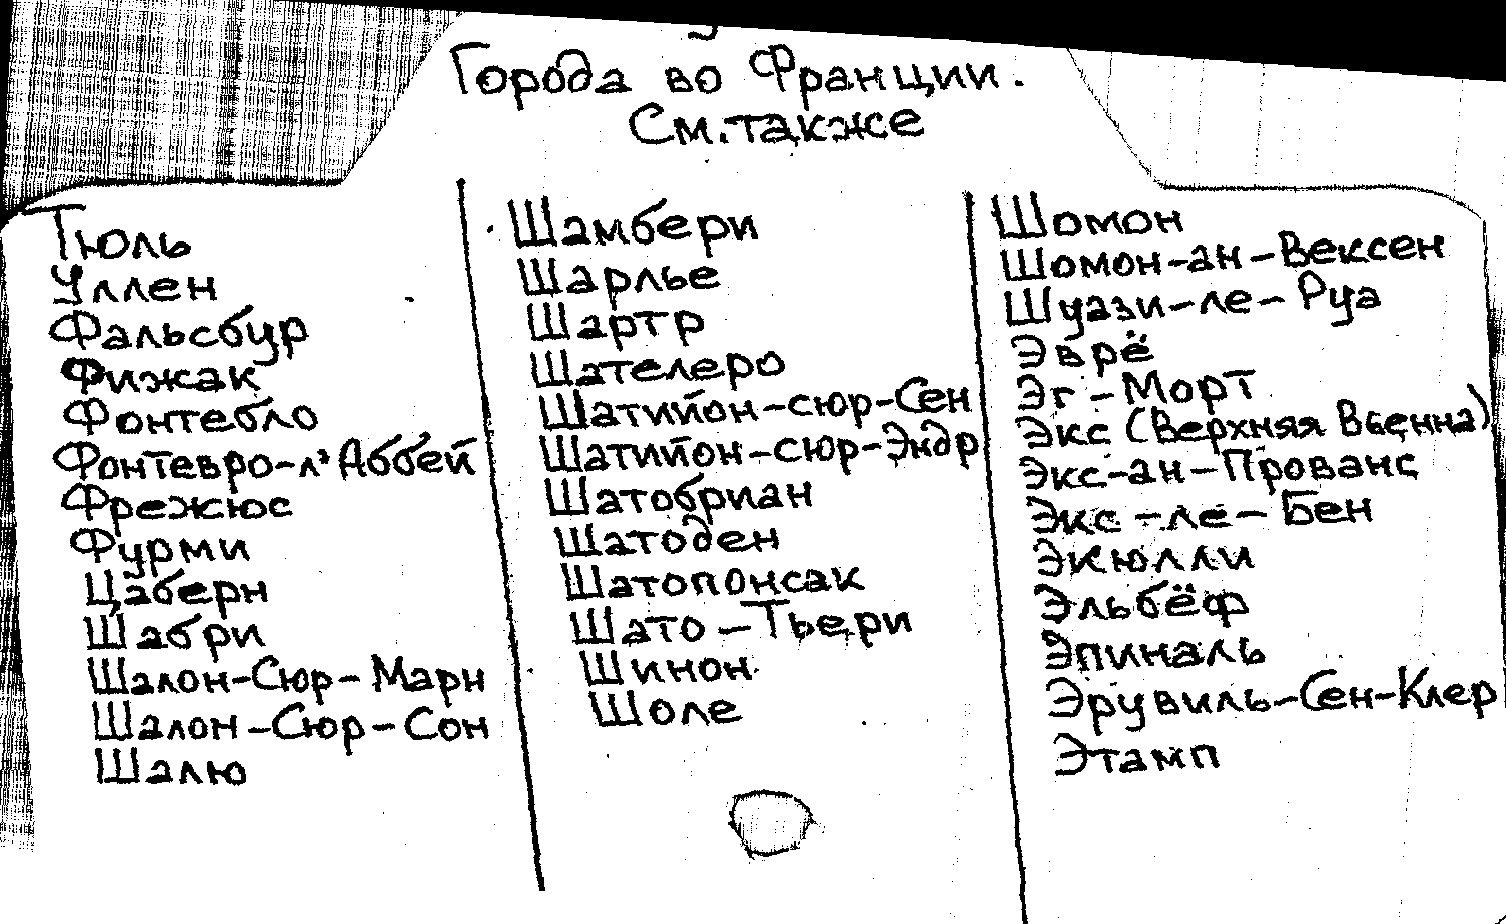 Города во Франции.
См. также
Тюль
Уллен
Фальсбур
Фижак
Фонтебло
Фонтевро-л'Аббей
Фрежюс
Фурми
Цаберн
Шабри
Шалон-Сюр-Марн
Шалон-Сюр-Сон
Шалю
Шамбери
Шарлье
Шартр
Шателеро
Шатийон-сюр-Сен
Шатийон-сюр-Эндр
Шатобриан
Шатоден
Шатопонсак
Шато-Тьери
Шинон
Шоле
Шомон
Шомон-ан-Вексен
Шуази-ле-Руа
Эврё
Эг-Морт
Экс (Верхняя Вьенна)
Экс-ан-Прованс
Экс-ле-Бен
Экюлли
Эльбёф
Эпиналь
Эрувиль-Сен-Клер
Этамп